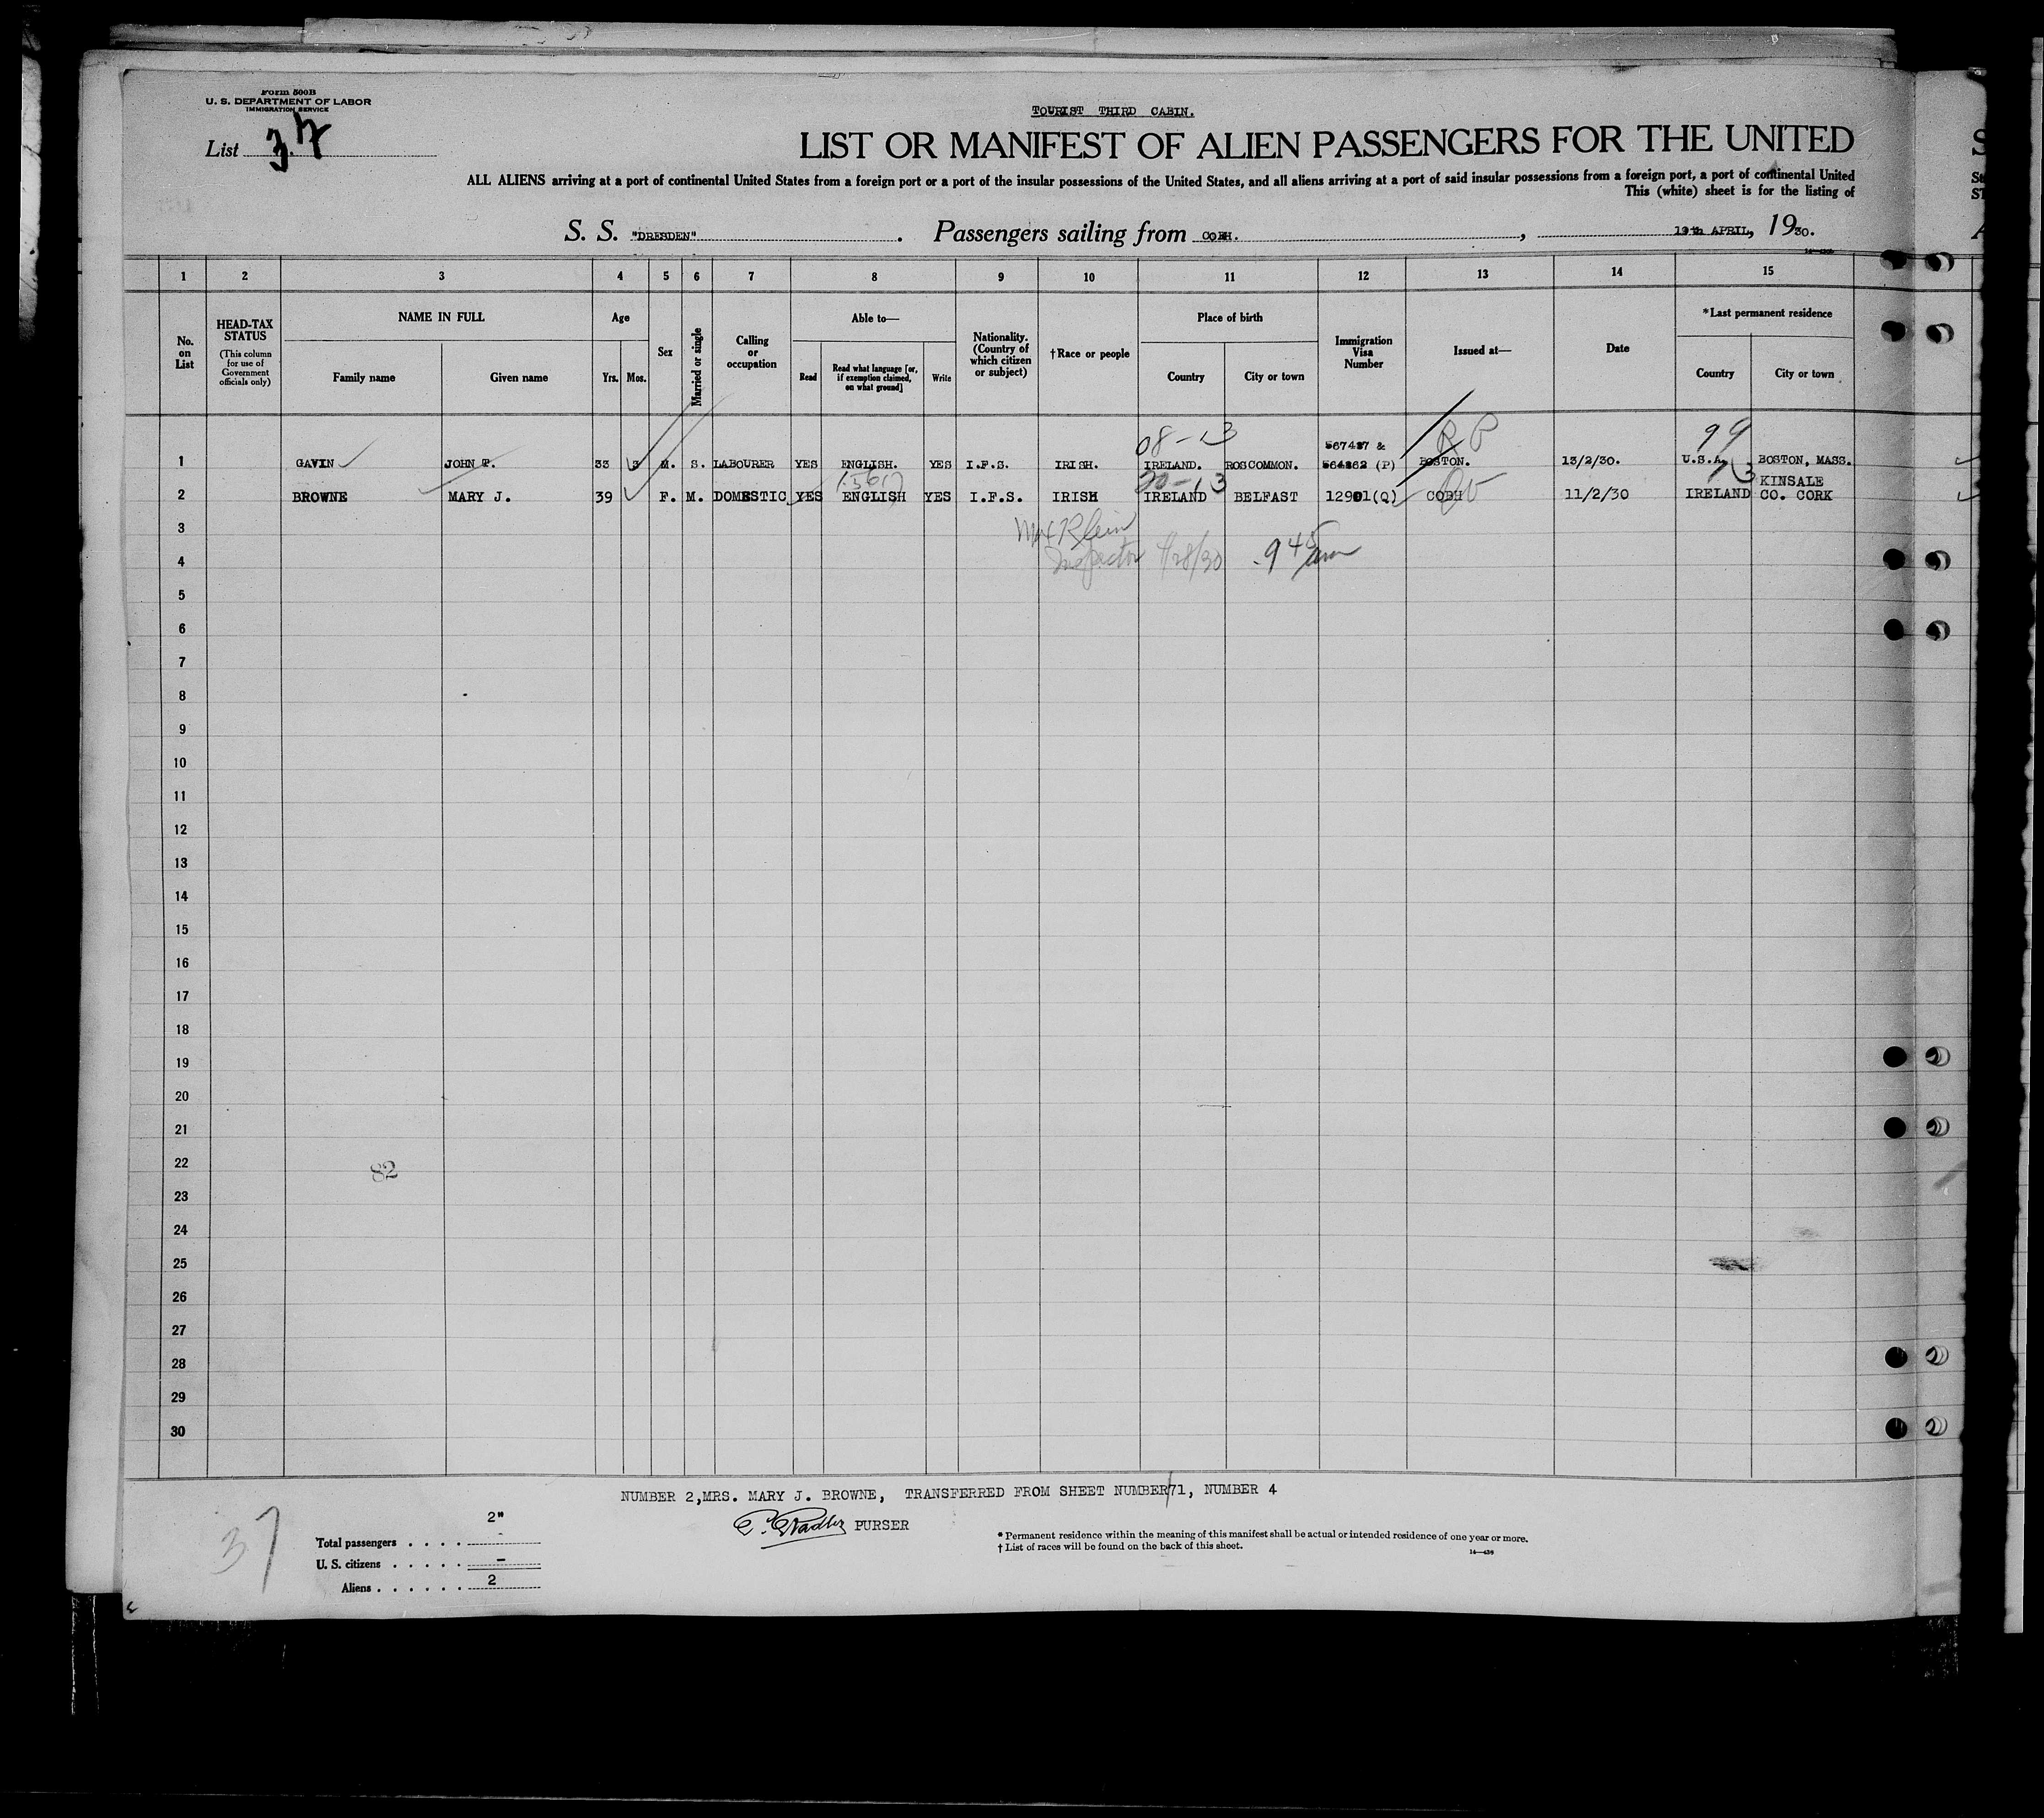 TOURIST THIRD CABIN.
Form 500B
U. S. DEPARTMENT OF LABOR
IMMIGRATION SERVICE
List 37
LIST OR MANIFEST OF ALIEN PASSENGERS FOR THE UNITED
ALL ALIENS arriving at a port of continental United States from a foreign port or a port of the insular possessions of the United States, and all aliens arriving at a port of said insular possessions from a foreign port, a port of continental United
This (white) sheet is for the listing of
S. S. "DRESDEN". Passengers sailing from COBH. , 19th APRIL, 1930.
1 2 3 4 5 6 7 8 9 10 11 12 13 14 15
No. on List
HEAD-TAX STATUS
(This column for use of Government officials only)
NAME IN FULL
Family name Given name
Age
Yrs. Mos.
Sex
Married or single
Calling or occupation
Able to—
Read Read what language [or, if exemption claimed, on what ground] Write
Nationality. (Country of which citizen or subject)
†Race or people
Place of birth
Country City or town
Immigration Visa Number
Issued at—
Date
*Last permanent residence
Country City or town
08-13 RP 99
567437 &
1 GAVIN JOHN T. 33 M. S. LABOURER YES ENGLISH. YES I.F.S. IRISH. IRELAND. ROSCOMMON. (P) BOSTON. 13/2/30. U.S.A. BOSTON, MASS.
20-13
2 BROWNE MARY J. 39 F. M. DOMESTIC YES ENGLISH YES I.F.S. IRISH IRELAND BELFAST 12901(Q) COBH 11/2/30 IRELAND KINSALE CO. CORK
3 Klein
4 Inspector 4/28/30 9 45 am
5
6
7
8
9
10
11
12
13
14
15
16
17
18
19
20
21
22
82
23
24
25
26
27
28
29
30
NUMBER 2,MRS. MARY J. BROWNE, TRANSFERRED FROM SHEET NUMBER 71, NUMBER 4
PURSER
37
2"
Total passengers . . . . -
U. S. citizens . . . . . -
Aliens . . . . . . 2
* Permanent residence within the meaning of this manifest shall be actual or intended residence of one year or more.
† List of races will be found on the back of this sheet.